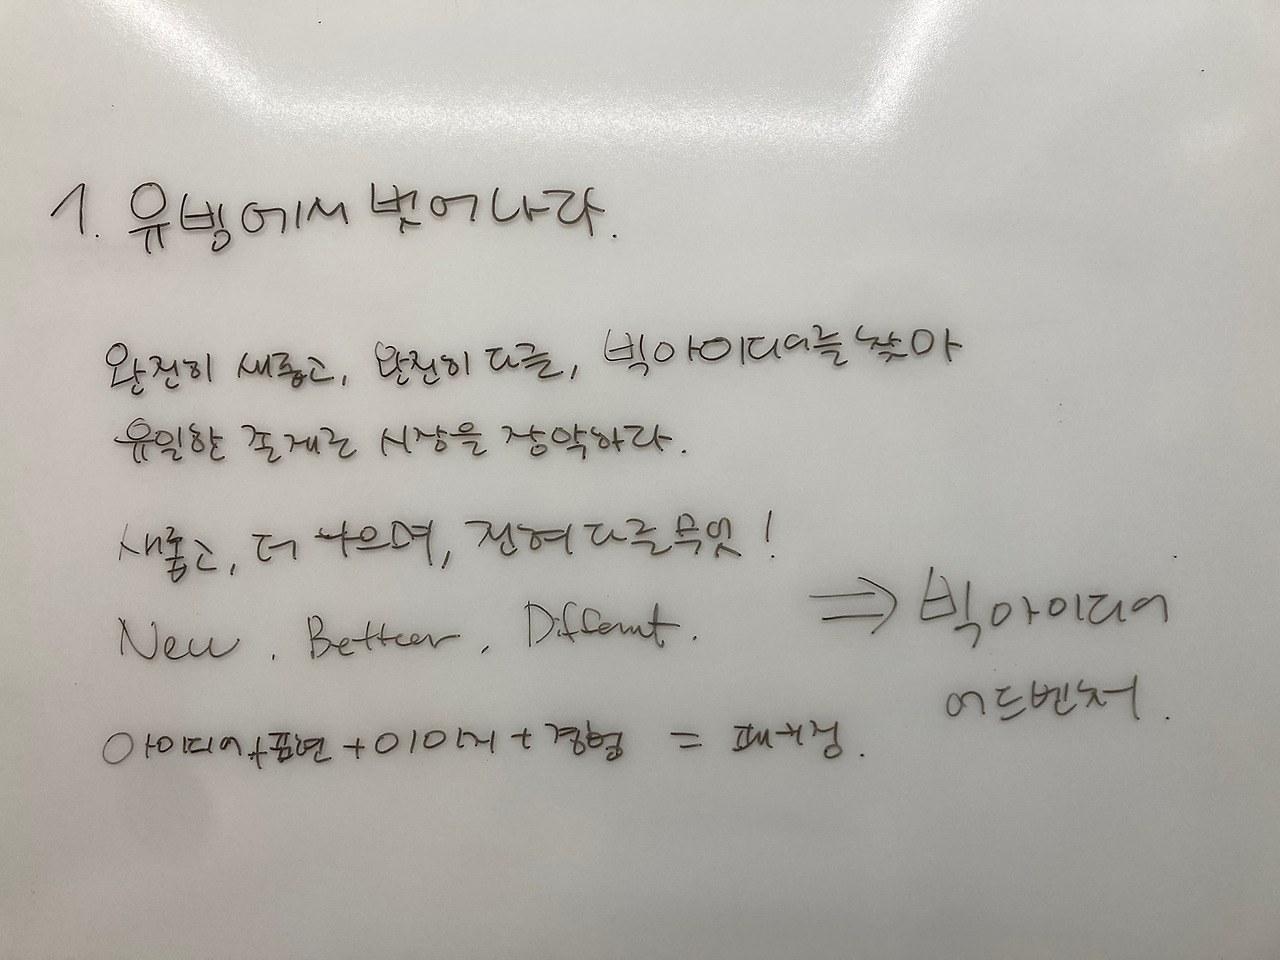 1. 유빙에서 벗어나라.
완전히 새롭고, 완전히 다른, 빅아이디어를 찾아
유일한 존재로 시장을 장악하라.
새롭고, 더 나으며, 전혀 다른 무엇!
New. Better. Different.
⇒ 빅아이디어
어드벤처.
아이디어+표현+이미지+경험 = 패키징.